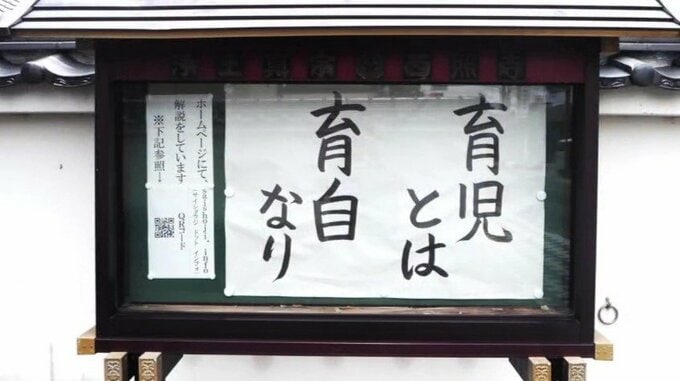 浄土真宗 西照寺
育児
とは
育自
なり
ホームページにて、
解説をしています
※下記参照→
saishouji. info
(サイショウジ ドット インフォ)
QRコード